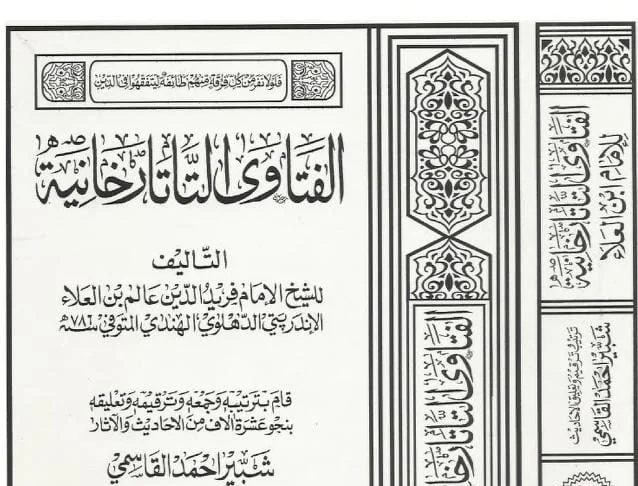 فلولا نفر من كل فرقة منهم طائفة ليتفقهوا في الدين
الفتاوى التاتارخانية
التأليف
للشيخ الإمام فريد الدين عالم بن العلاء
الإندربتي الدهلوي الهندي المتوفي سنة ٧٨٦ھ
قام بترتيبه وجمعه وترقيمه وتعليقه
بنحو عشرة آلاف من الاحاديث والآثار
شبير احمد القاسمي
الفتاوى التاتارخا
الفتاوى التاتارخانية
للإمام ابن العلاء
ترتيب ترقيم وتعليق الاحاديث
شبير احمد القاسمي